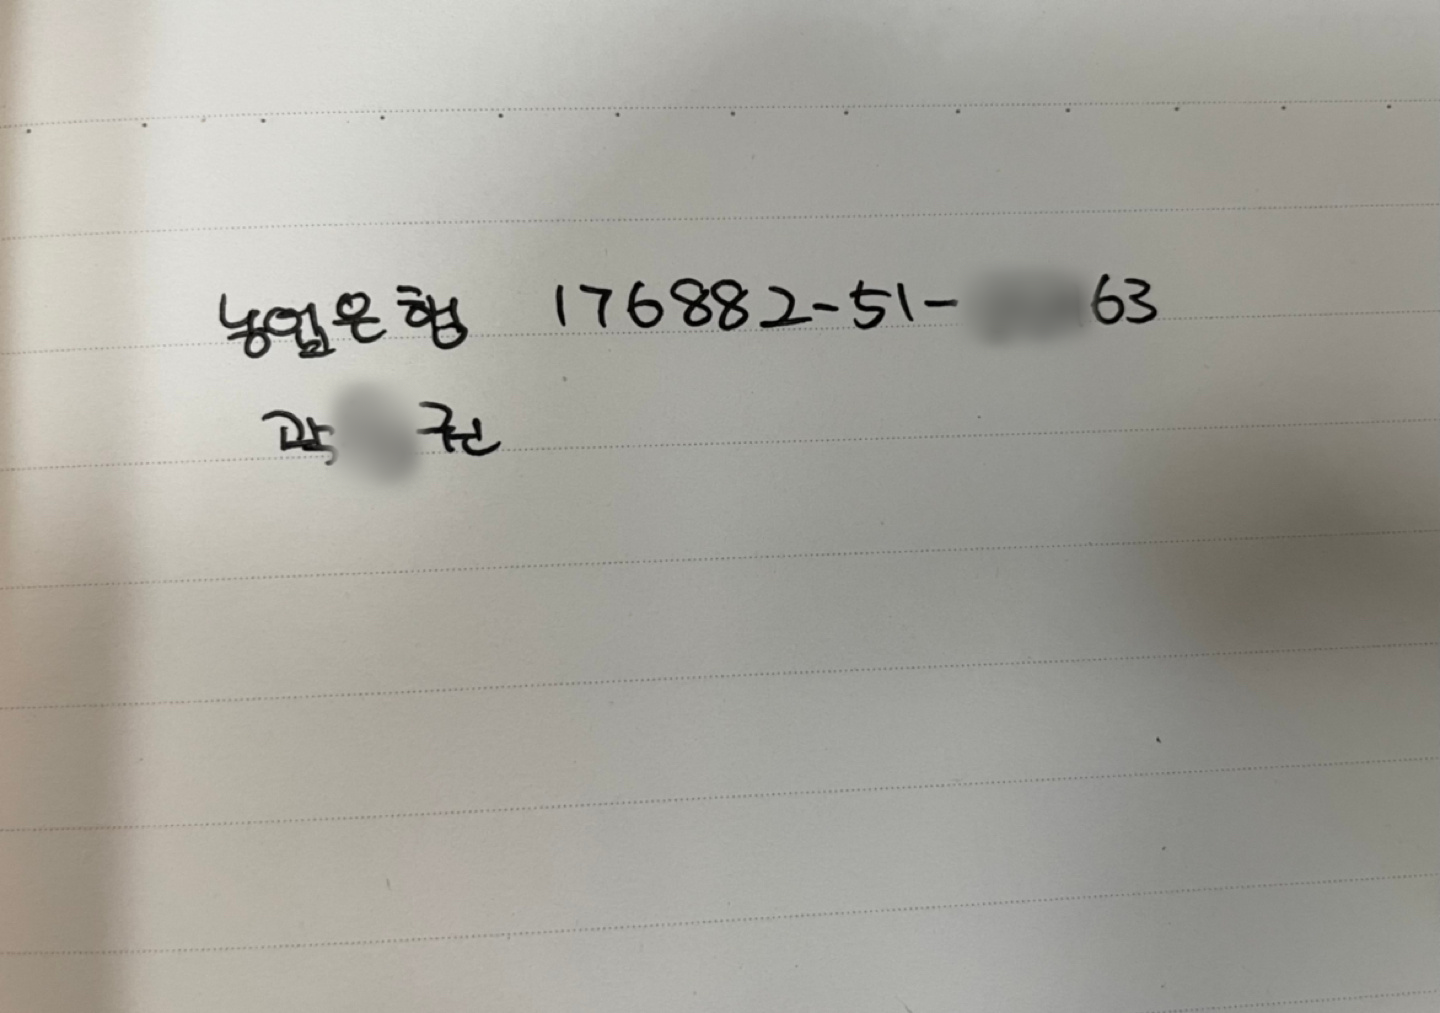 농업은행 176882-51- 63
곽 권